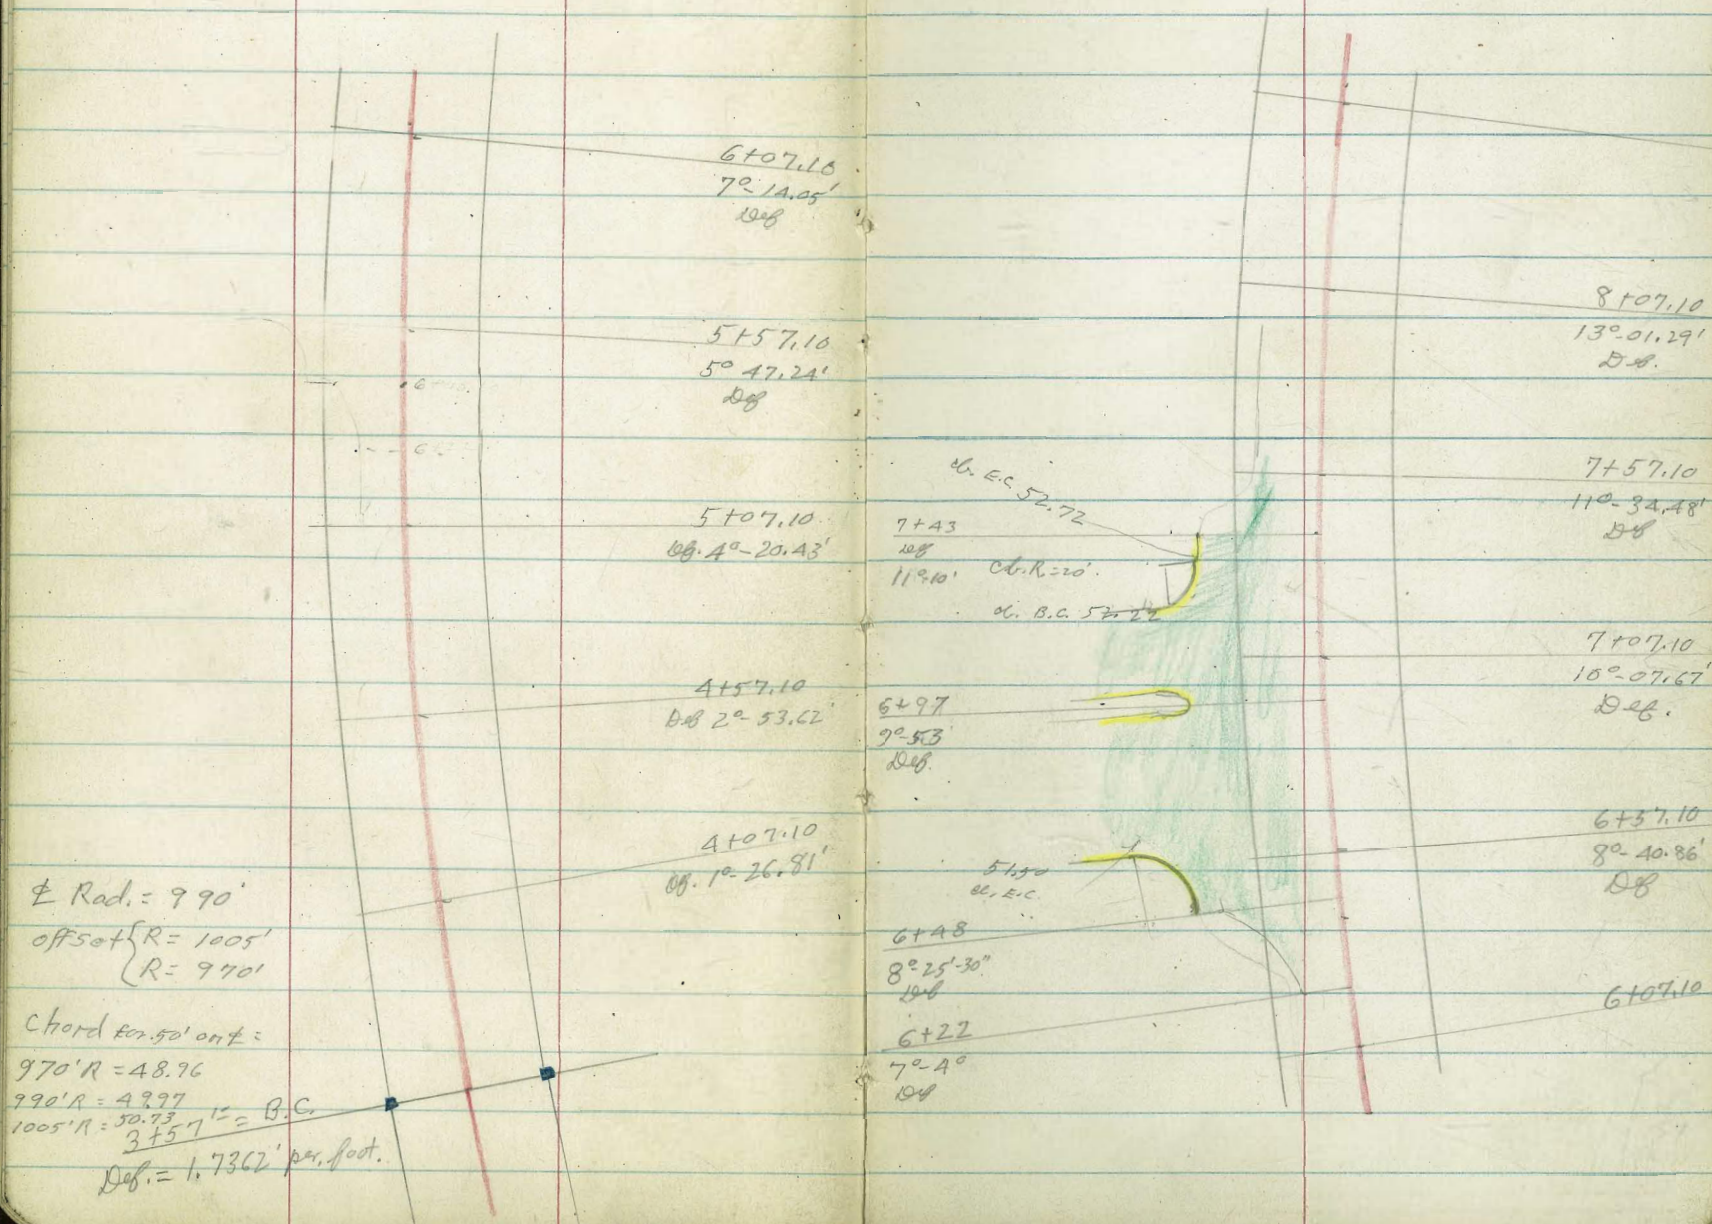 6+07.10
7°-14.05'
Def
5+57.10
5° 47.24'
Def
5+07.10
Def. 4°-20.43'
4+57.10
Def 2°-53.62'
4+07.10
Def. 1°-26.81'
℄ Rad. = 990'
offset { R = 1005'
R = 970'
Chord for 50' on ℄ =
970' R = 48.96
990' R = 49.97
1005' R = 50.73
3+57 10 = B.C.
Def. = 1.7362' per. foot.
8+07.10
13°-01.29'
Def.
7+57.10
11°-34.48'
Def
cb. E.C. 52.72
7+43
Def
11°-10'
Cb. R = 20'.
cb. B.C. 52.22
7+07.10
10°-07.67'
Def.
6+97
9°-53'
Def.
6+57.10
8°-40.86'
Def
51.50
cb. E.C.
6+48
8°-25'-30"
Def
6+07.10
6+22
7°-40
Def